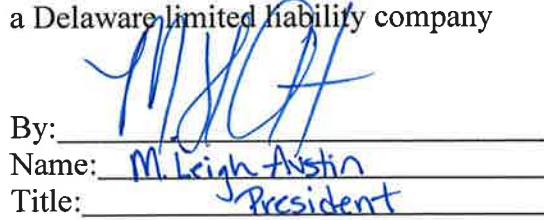 a Delaware limited liability company
By:
Name: M. Leigh Austin
Title: President